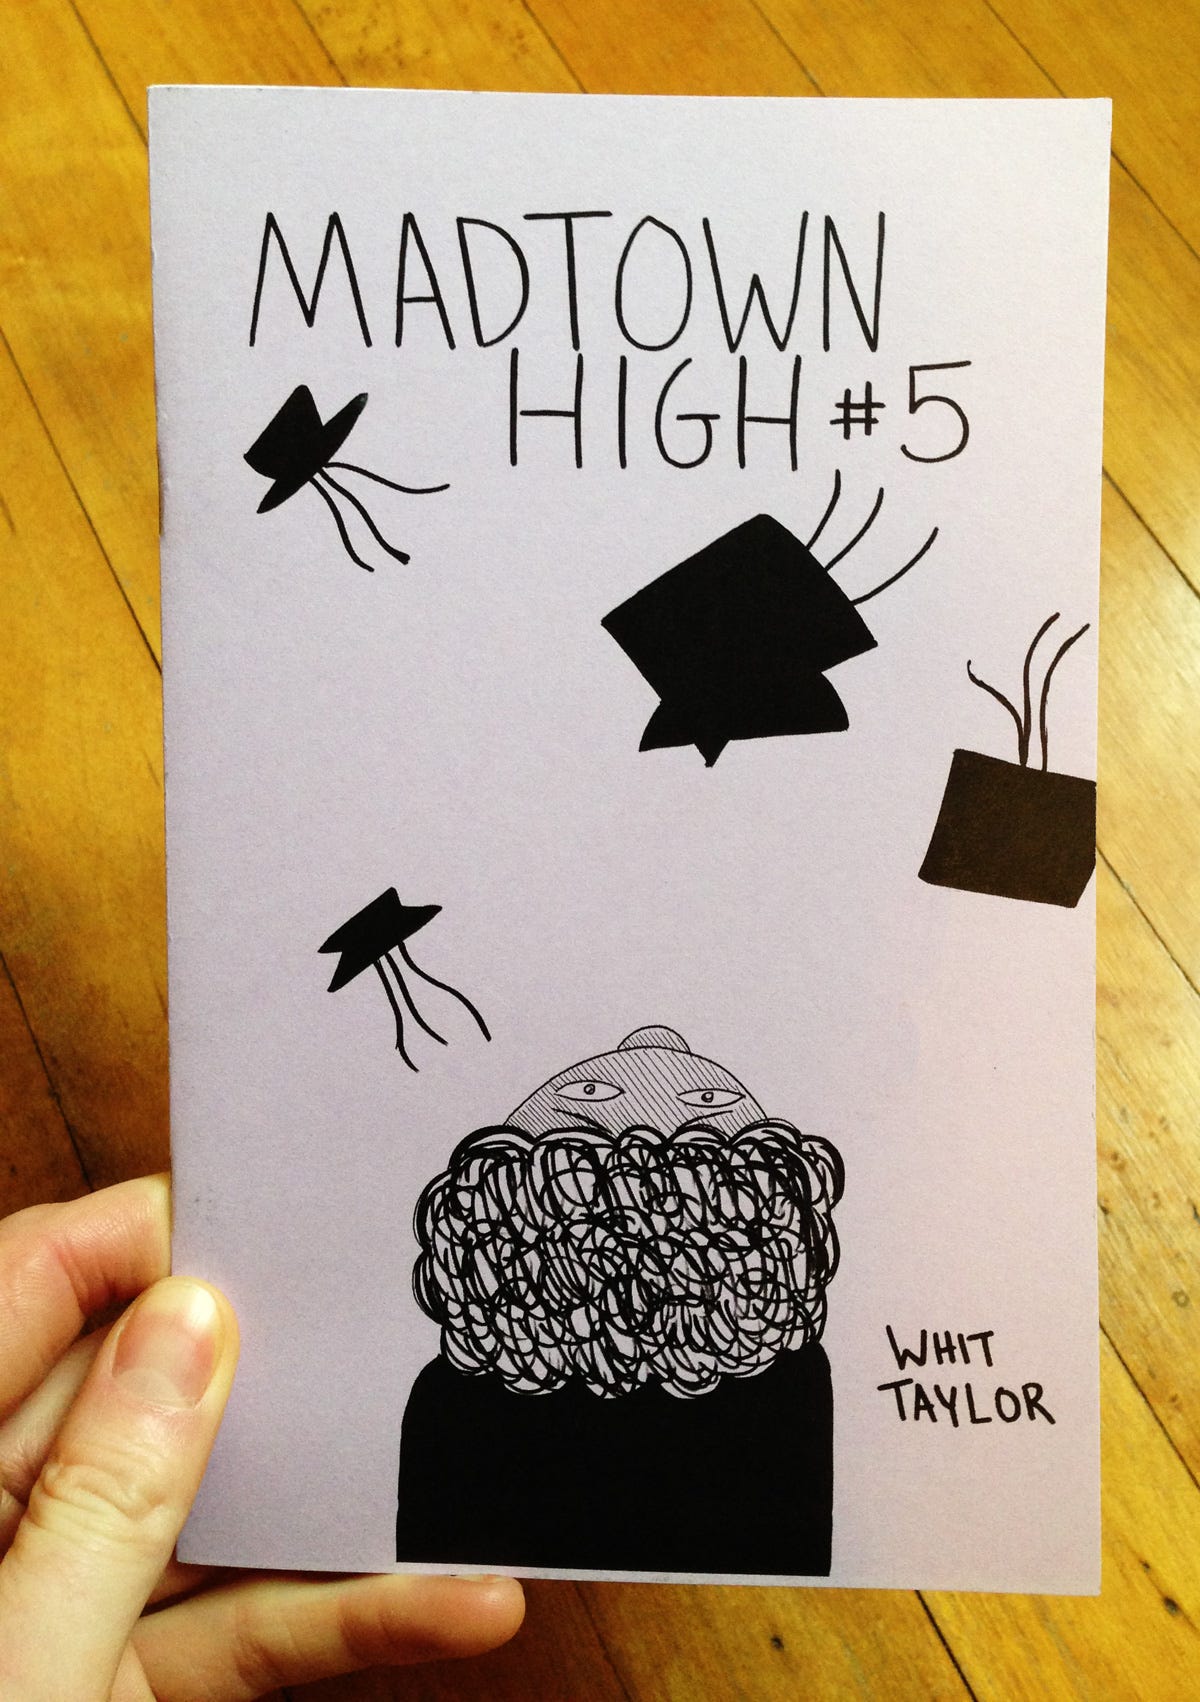 MADTOWN
HIGH #5
WHIT
TAYLOR